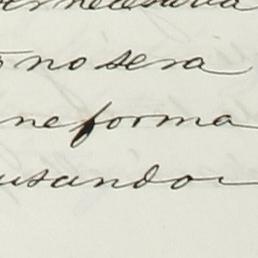 no sera
ne forma
usando